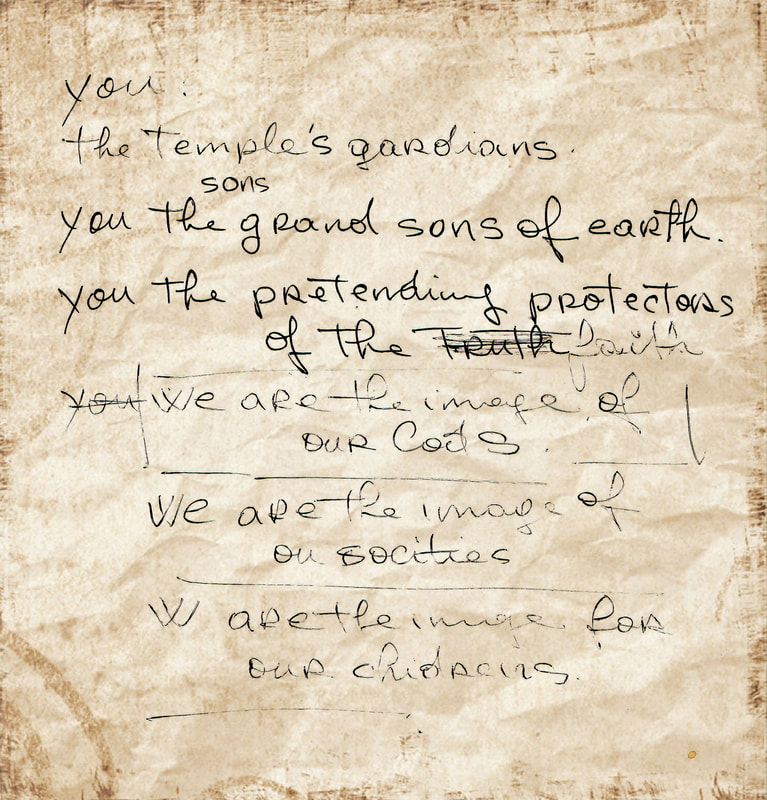 you.
the Temple's gardians.
sons
you the grand sons of earth.
you the pretending protectors
of the Truth faith
you We are the image of
our Gods.
We are the image of
ou socities
W are the image for
our chidrens.